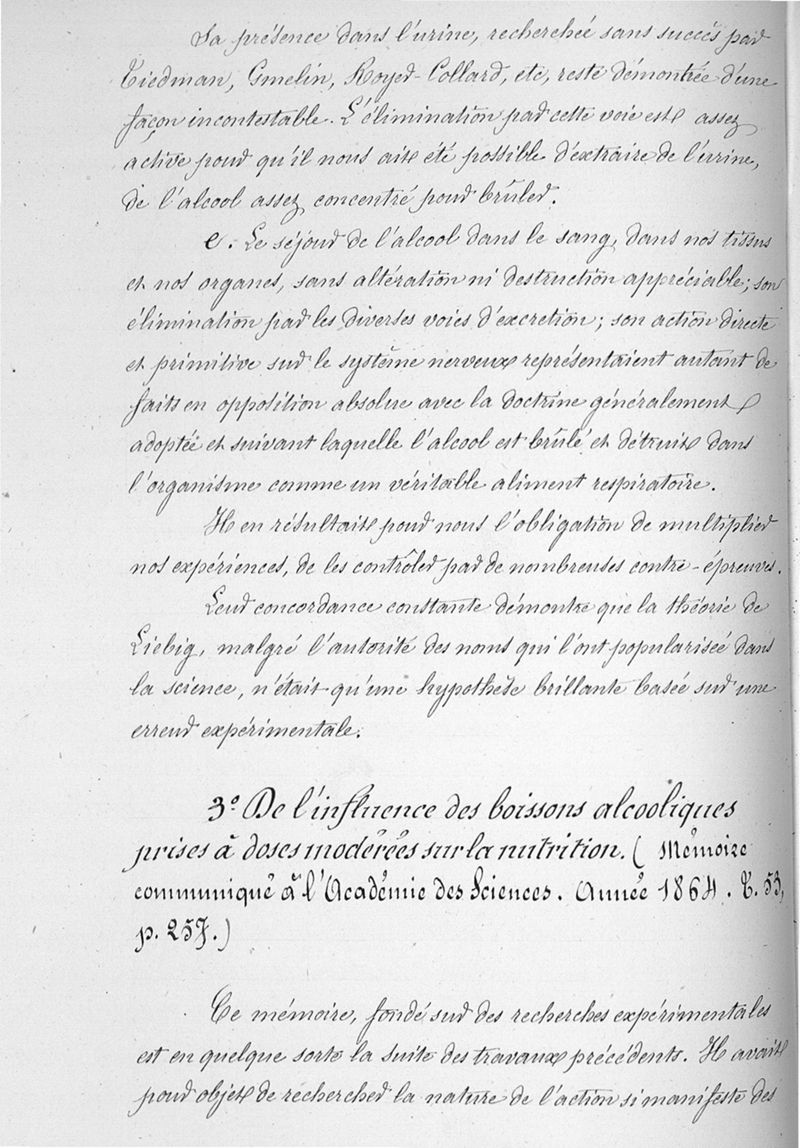 Sa présence dans l'urine, recherchée sans succès par
Tiedman, Gmelin, Royer-Collard, etc, reste démontrée d'une
façon incontestable. L'élimination par cette voie est assez
active pour qu'il nous ait été possible d'extraire de l'urine,
de l'alcool assez concentré pour brûler.
e. Le séjour de l'alcool dans le sang, dans nos tissus
et nos organes, sans altération ni destruction appréciable; son
élimination par les diverses voies d'excretion; son action directe
et primitive sur le système nerveux représentaient autant de
faits en opposition absolue avec la doctrine généralement
adoptée et suivant laquelle l'alcool est brûlé et détruit dans
l'organisme comme un véritable aliment respiratoire.
Il en résultait pour nous l'obligation de multiplier
nos expériences, de les contrôler par de nombreuses contre-épreuves.
Leur concordance constante démontre que la théorie de
Liebig, malgré l'autorité des noms qui l'ont popularisée dans
la science, n'était qu'une hypothèse brillante basée sur une
erreur expérimentale.
3° De l'influence des boissons alcooliques
prises à doses modérées sur la nutrition. (Mémoire
communiqué à l'Académie des Sciences. Année 1864. T. 53,
p. 257.)
Ce mémoire, fondé sur des recherches expérimentales
est en quelque sorte la suite des travaux précédents. Il avait
pour objet de rechercher la nature de l'action si manifeste des